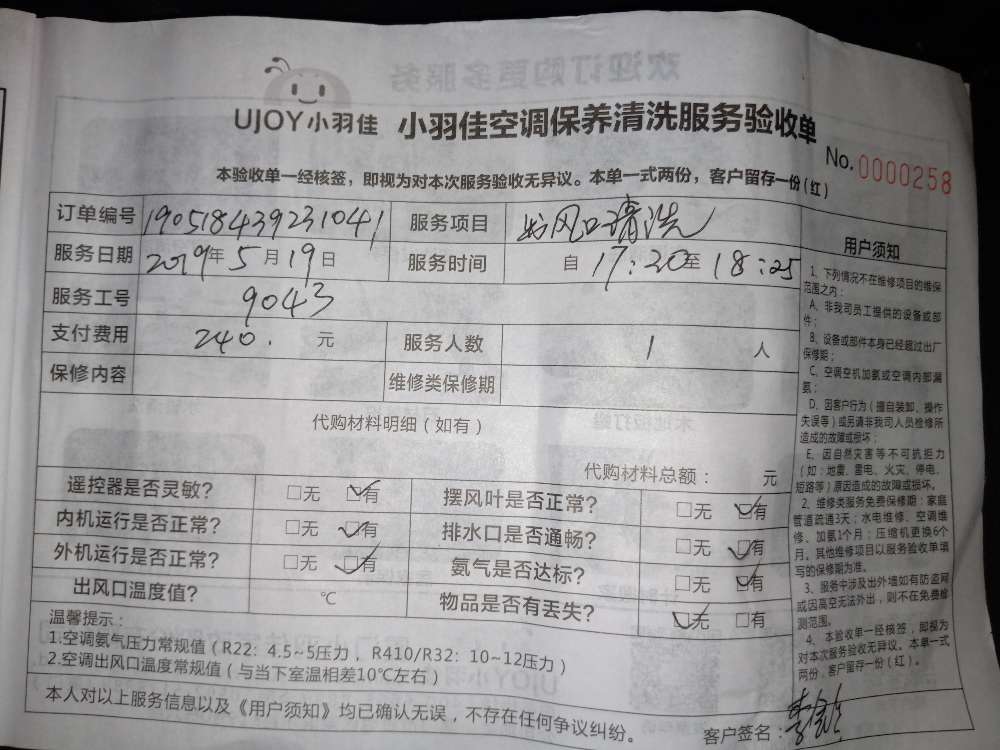 UJOY小羽佳 小羽佳空调保养清洗服务验收单
No. 0000258
本验收单一经核签，即视为对本次服务验收无异议。本单一式两份，客户留存一份(红)
订单编号 190518439231041 服务项目 出风口清洗
服务日期 2019年5月19日 服务时间 自17:20至18:25
服务工号 9043
支付费用 240. 元 服务人数 1 人
保修内容 维修类保修期
代购材料明细（如有）
代购材料总额： 元
遥控器是否灵敏? □无 □有 摆风叶是否正常? □无 □有
内机运行是否正常? □无 □有 排水口是否通畅? □无 □有
外机运行是否正常? □无 □有 氨气是否达标? □无 □有
出风口温度值? ℃ 物品是否有丢失? □无 □有
温馨提示：
1.空调氨气压力常规值（R22：4.5~5压力，R410/R32：10~12压力）
2.空调出风口温度常规值（与当下室温相差10℃左右）
本人对以上服务信息以及《用户须知》均已确认无误，不存在任何争议纠纷。
客户签名：
用户须知
1、下列情况不在维修项目的维保
范围之内：
A、非我司员工提供的设备或部
件；
B、设备或部件本身已经超过出厂
保修期；
C、空调空机加氨或空调内部漏
氨；
D、因客户行为（擅自装卸、操作
失误等）或另请非我司人员检修所
造成的故障或损坏；
E、因自然灾害等不可抗拒力
（如：地震、雷电、火灾、停电、
短路等）原因造成的故障或损坏。
2、维修类服务免费保修期：家庭
管道疏通3天；水电维修、空调维
修、加氨1个月；压缩机更换6个
月。其他维修项目以服务验收单填
写的保修期为准。
3、服务中涉及出外墙如有防盗网
或因高空无法外出，则不在免费检
测范围。
4、本验收单一经核签，即视为
对本次服务验收无异议。本单一式
两份，客户留存一份（红）。